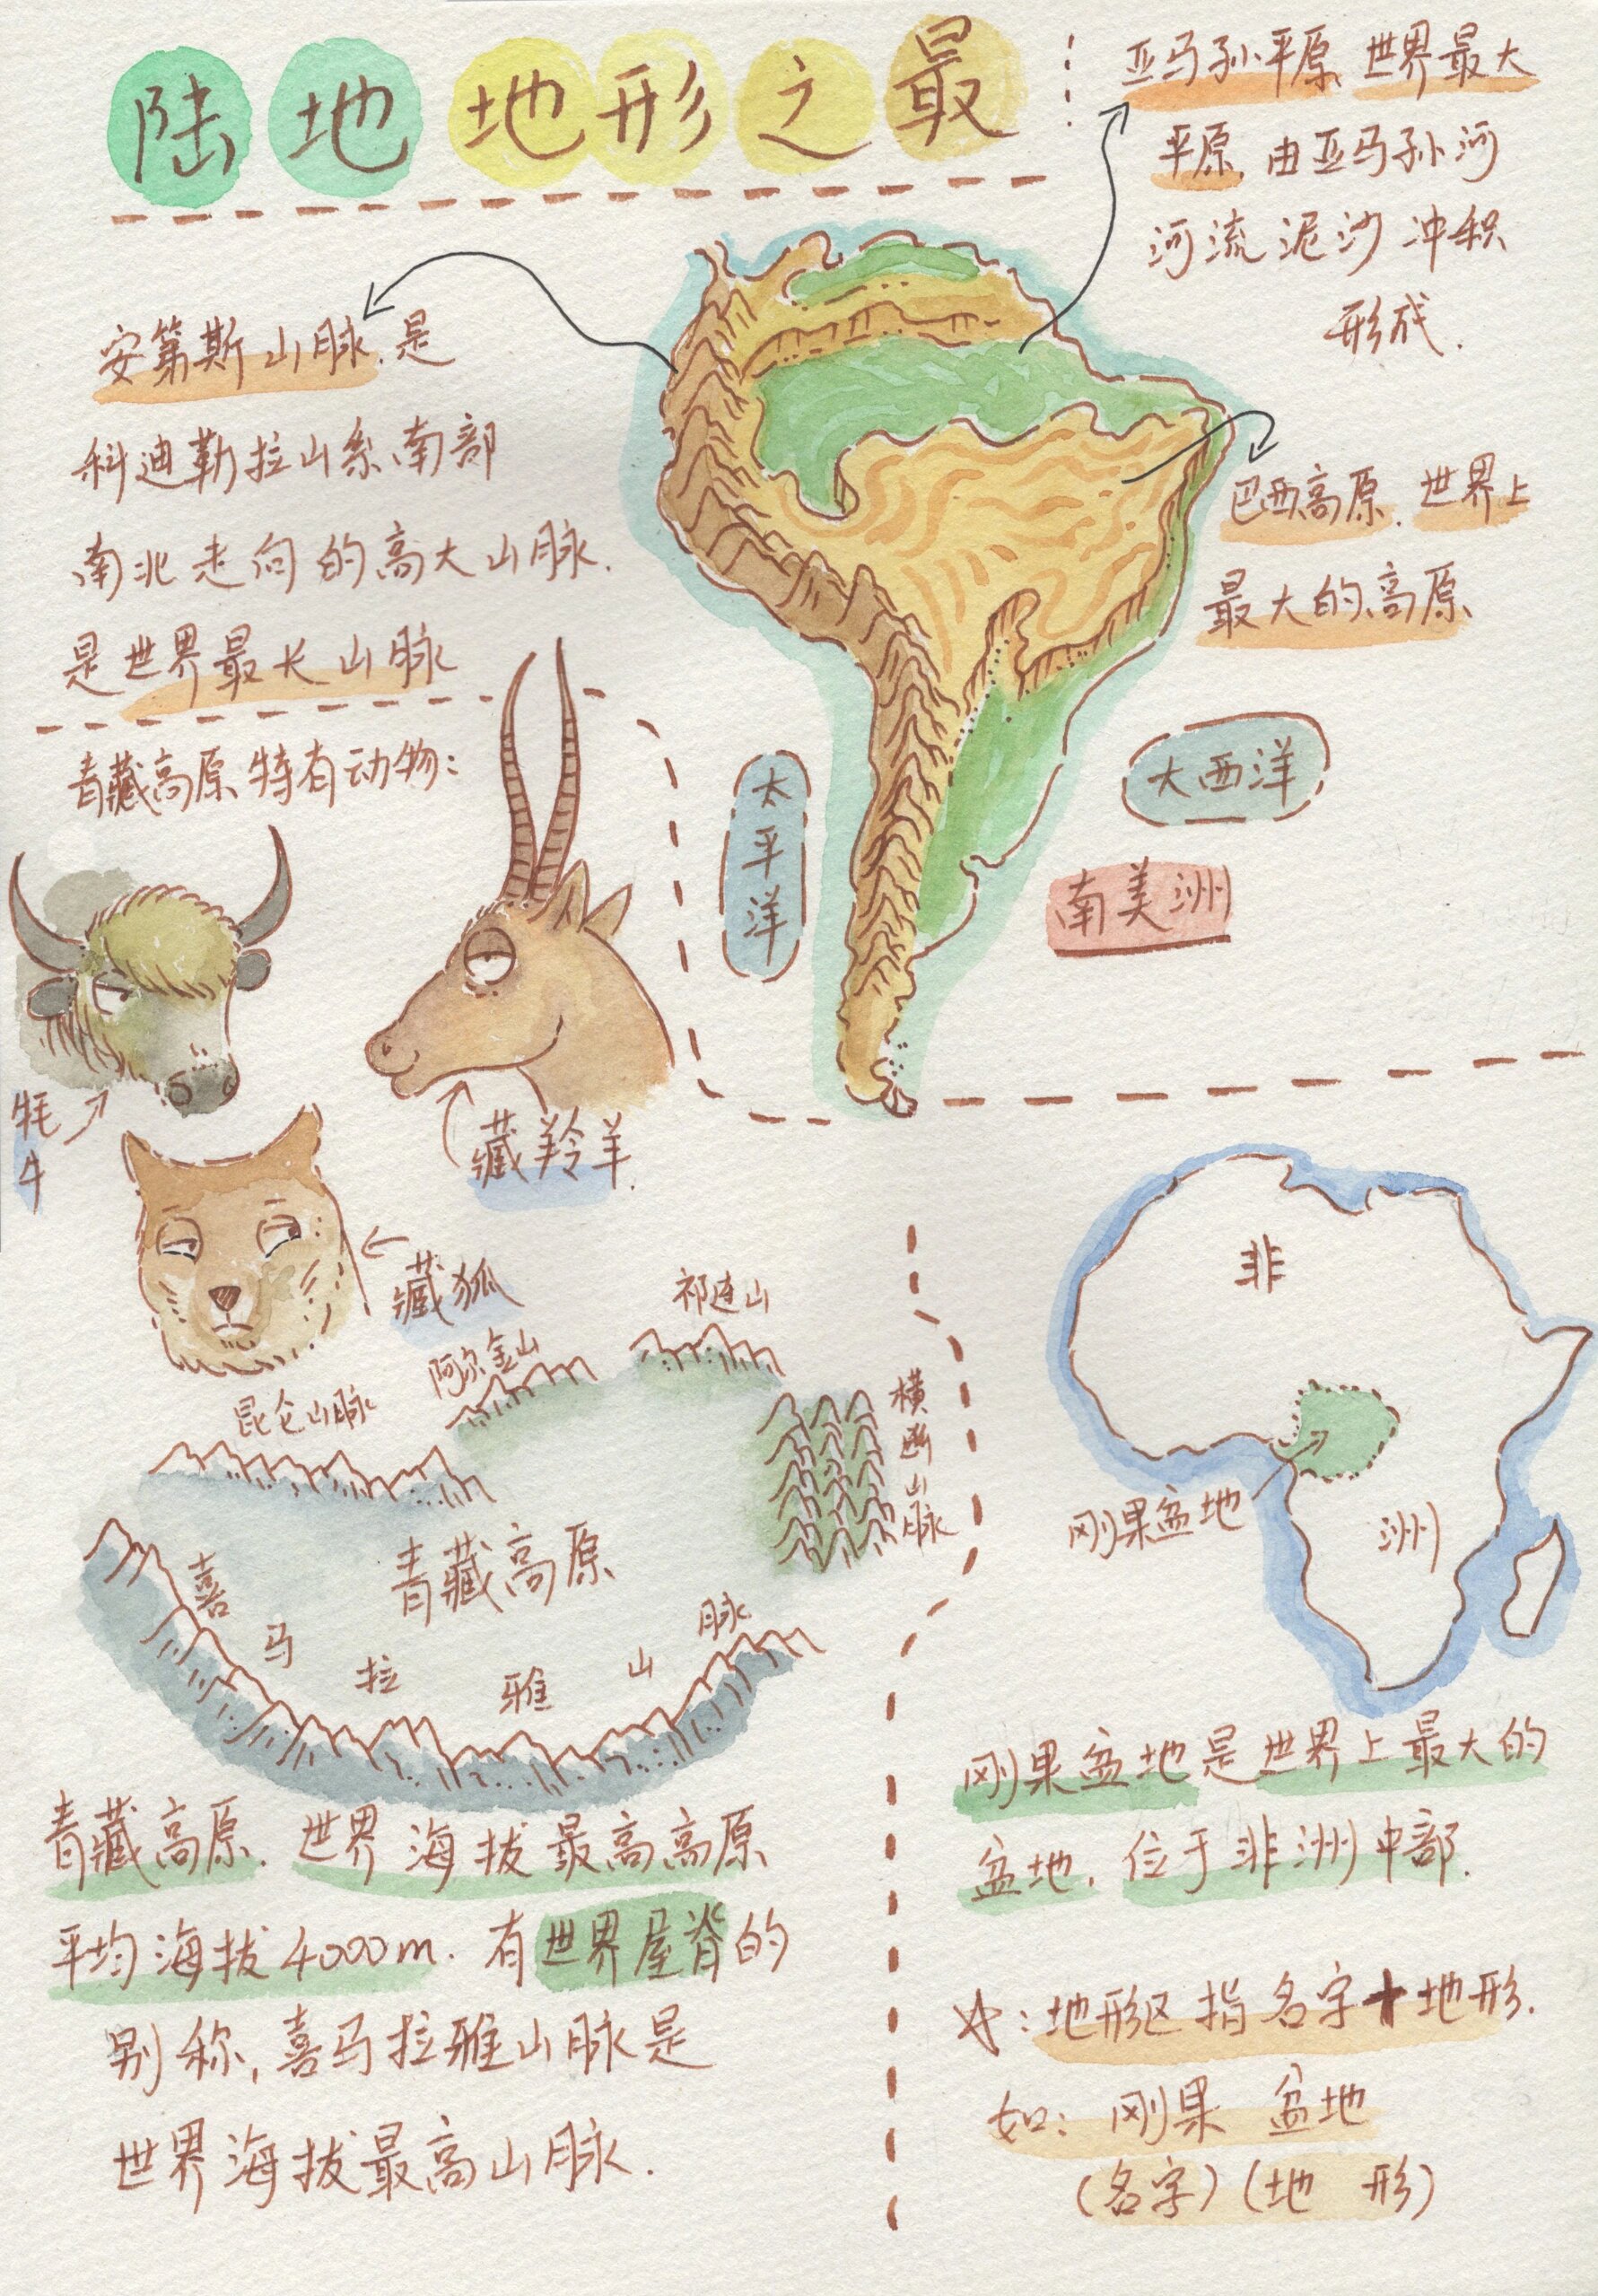 陆地地形之最
亚马孙平原,世界最大
平原,由亚马孙河
河流泥沙冲积
形成.
安第斯山脉.是
科迪勒拉山系南部
南北走向的高大山脉.
是世界最长山脉
巴西高原.世界上
最大的高原
太平洋
大西洋
南美洲
青藏高原特有动物:
牦牛
藏羚羊.
藏狐
祁连山
阿尔金山
昆仑山脉
横断山脉
青藏高原
喜马拉雅山脉
青藏高原.世界海拔最高高原
平均海拔4000m.有世界屋脊的
别称,喜马拉雅山脉是
世界海拔最高山脉.
非
洲
刚果盆地
刚果盆地是世界上最大的
盆地.位于非洲中部.
☆:地形区指名字+地形.
如:刚果 盆地
(名字)(地 形)